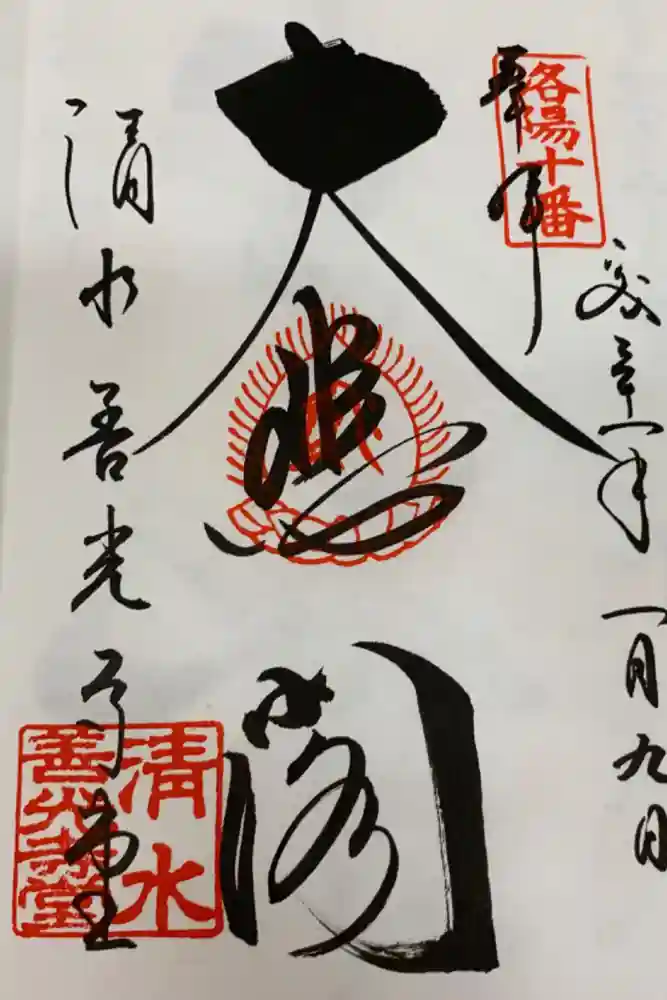 洛陽十番
奉拝
平成三十一年一月九日
大悲閣
清水善光寺堂
清水
善光寺堂